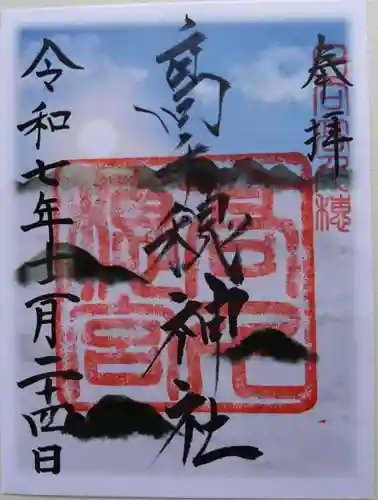 奉拝
高千穂神社
令和七年十一月二十四日
高千穂宮